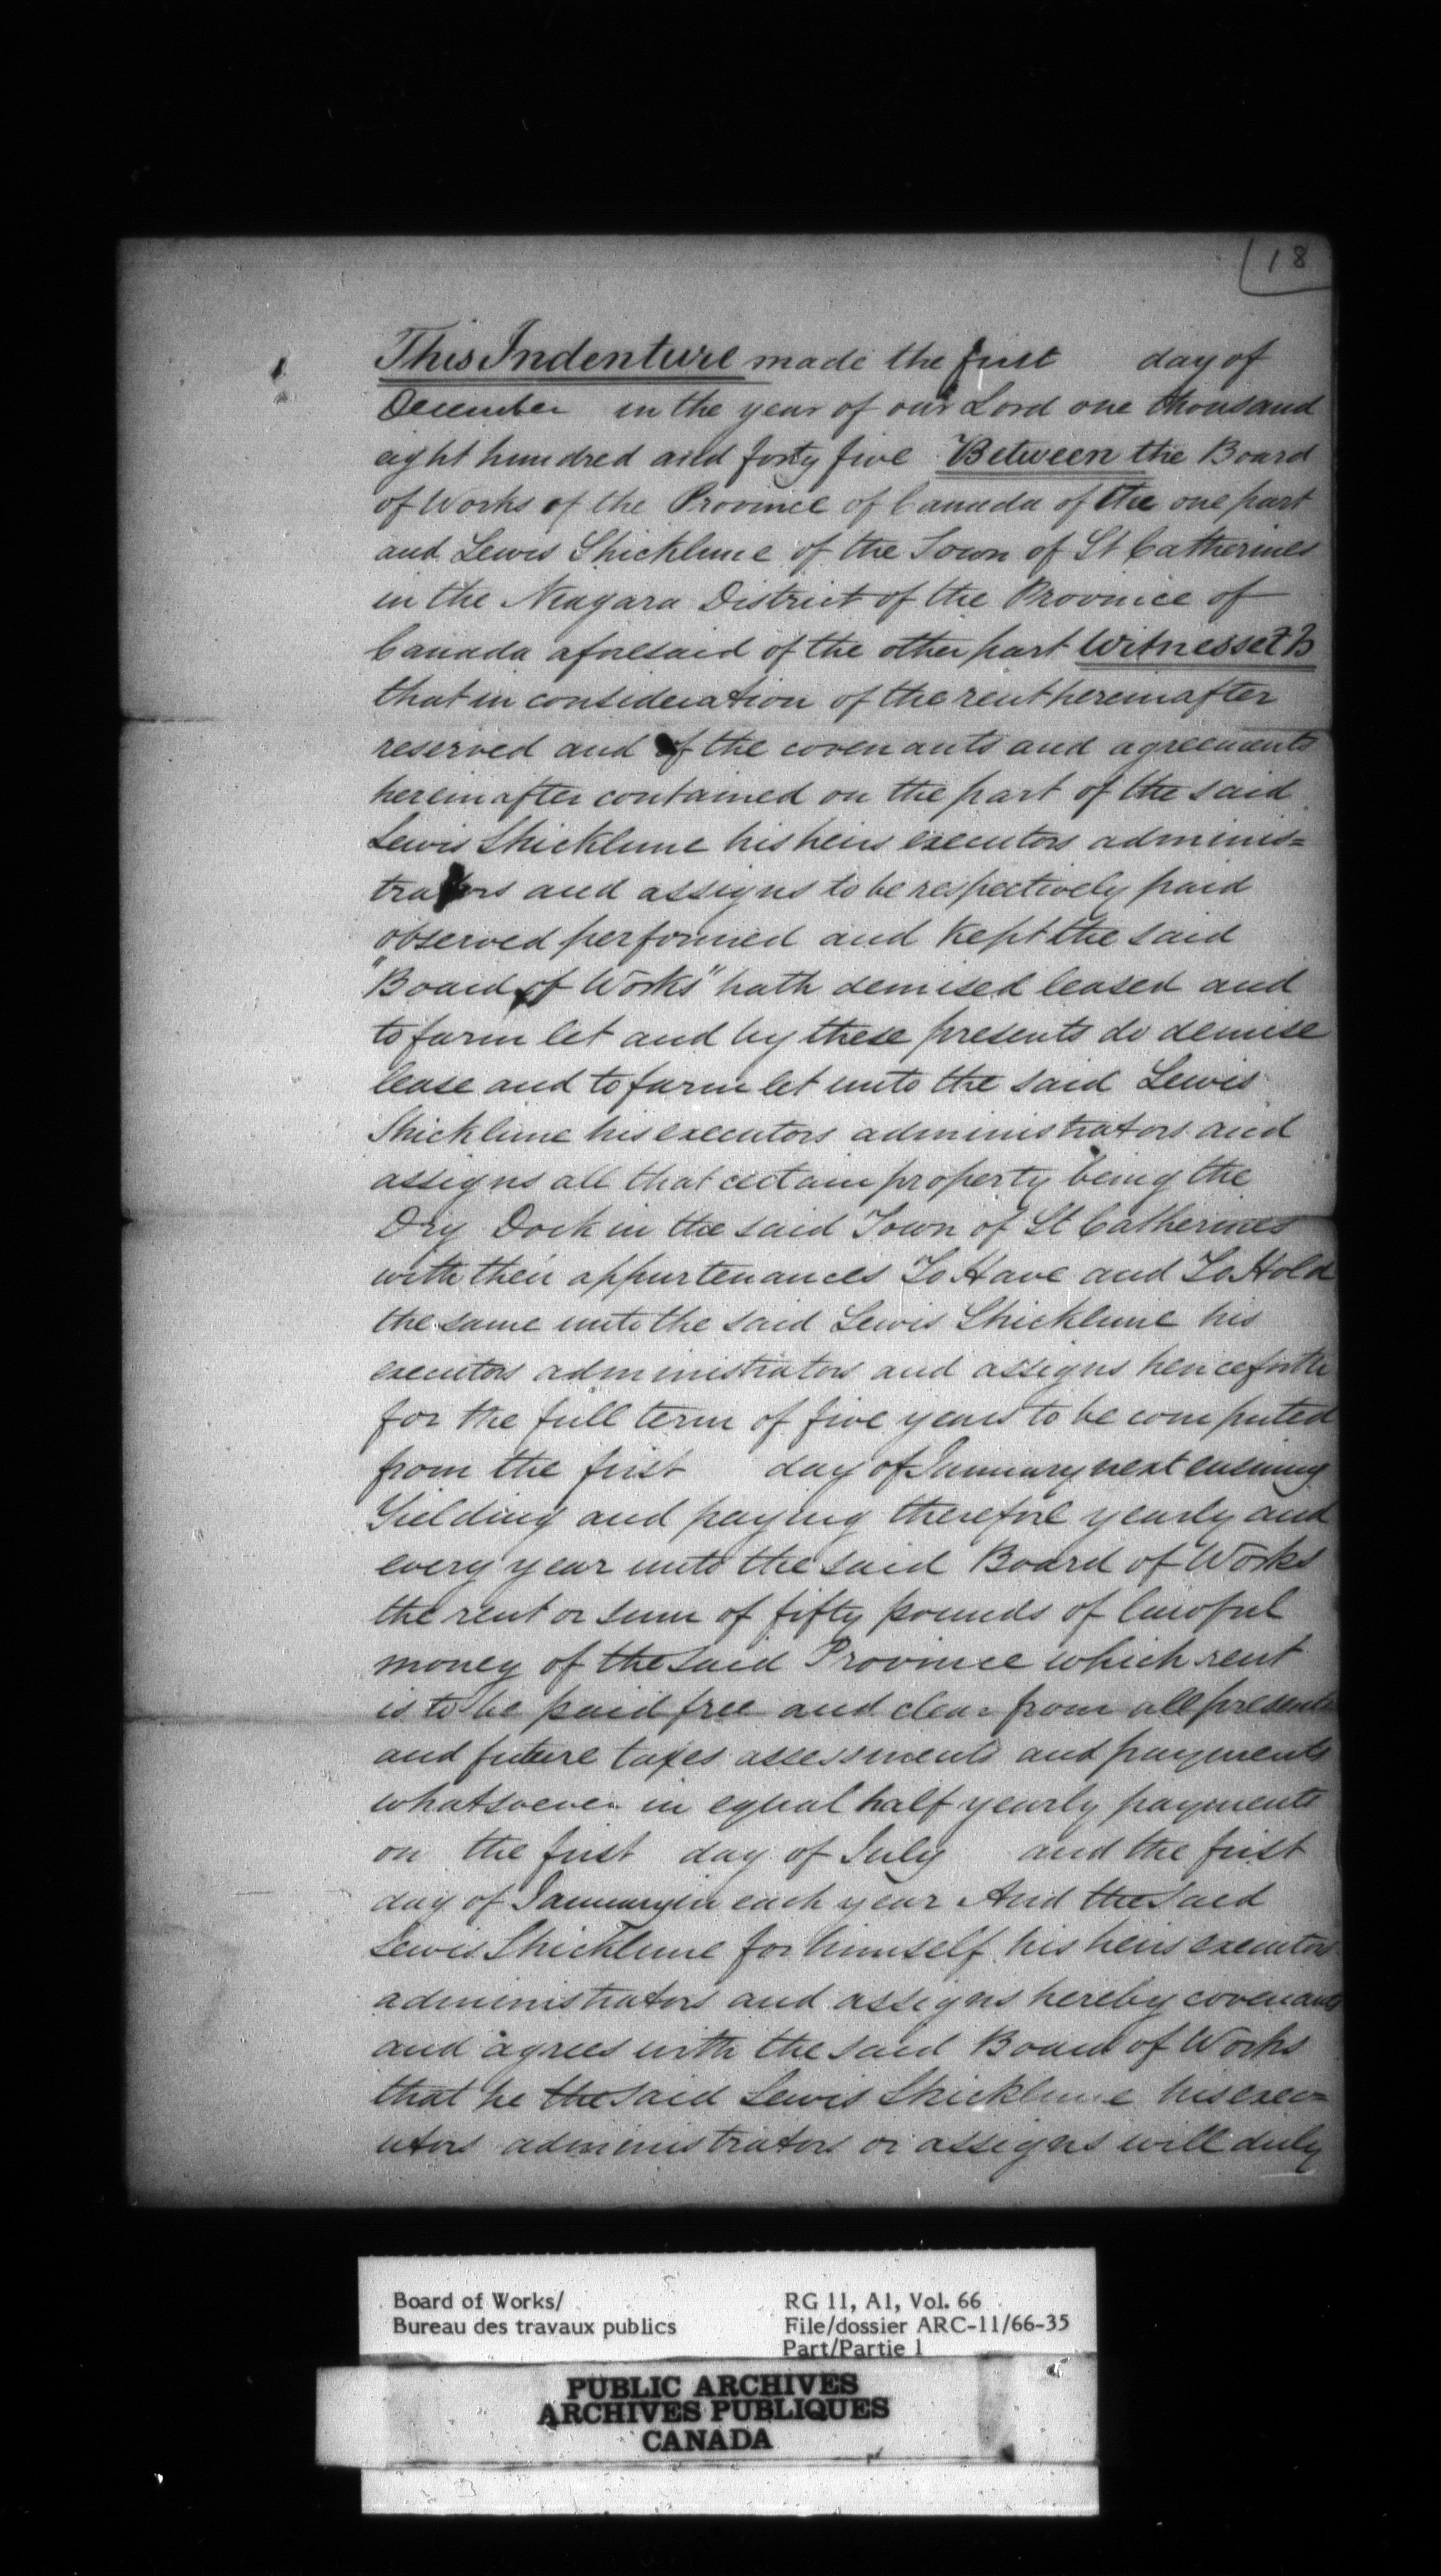 18
This Indenture made the first day of
December in the year of our Lord one thousand
eight hundred and forty five Between the Board
of Works of the Province of Canada of the one part
and Lewis Shicklune of the Town of St Catherines
in the Niagara District of the Province of
Canada aforesaid of the other part Witnesseth
that in consideration of the rent hereinafter
reserved and of the covenants and agreements
hereinafter contained on the part of the said
Lewis Shicklune his heirs executors adminis=
trators and assigns to be respectively paid
observed performed and kept the said
"Board of Works" hath demised leased and
to farm let and by these presents do demise
lease and to farm let unto the said Lewis
Shicklune his executors administrators and
assigns all that certain property being the
Dry Dock in the said Town of St Catherines
with their appurtenances To Have and To Hold
the same unto the said Lewis Shicklune his
executors administrators and assigns henceforth
for the full term of five years to be computed
from the first day of January next ensuing
Yielding and paying therefore yearly and
every year unto the said Board of Works
the rent or sum of fifty pounds of lawful
money of the said Province which rent
is to be paid free and clear from all present
and future taxes assessments and payments
whatsoever in equal half yearly payments
on the first day of July and the first
day of January in each year And the said
Lewis Shicklune for himself his heirs executors
administrators and assigns hereby covenants
and agrees with the said Board of Works
that he the said Lewis Shicklune his exec=
utors administrators or assigns will duly
Board of Works/
Bureau des travaux publics
RG 11, A1, Vol. 66
File/dossier ARC-11/66-35
Part/Partie 1
PUBLIC ARCHIVES
ARCHIVES PUBLIQUES
CANADA